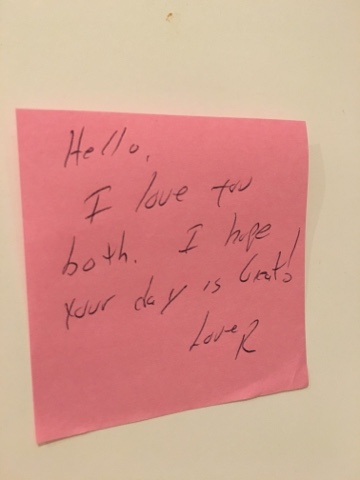 Hello,
I love you
both. I hope
your day is Great!
Love R